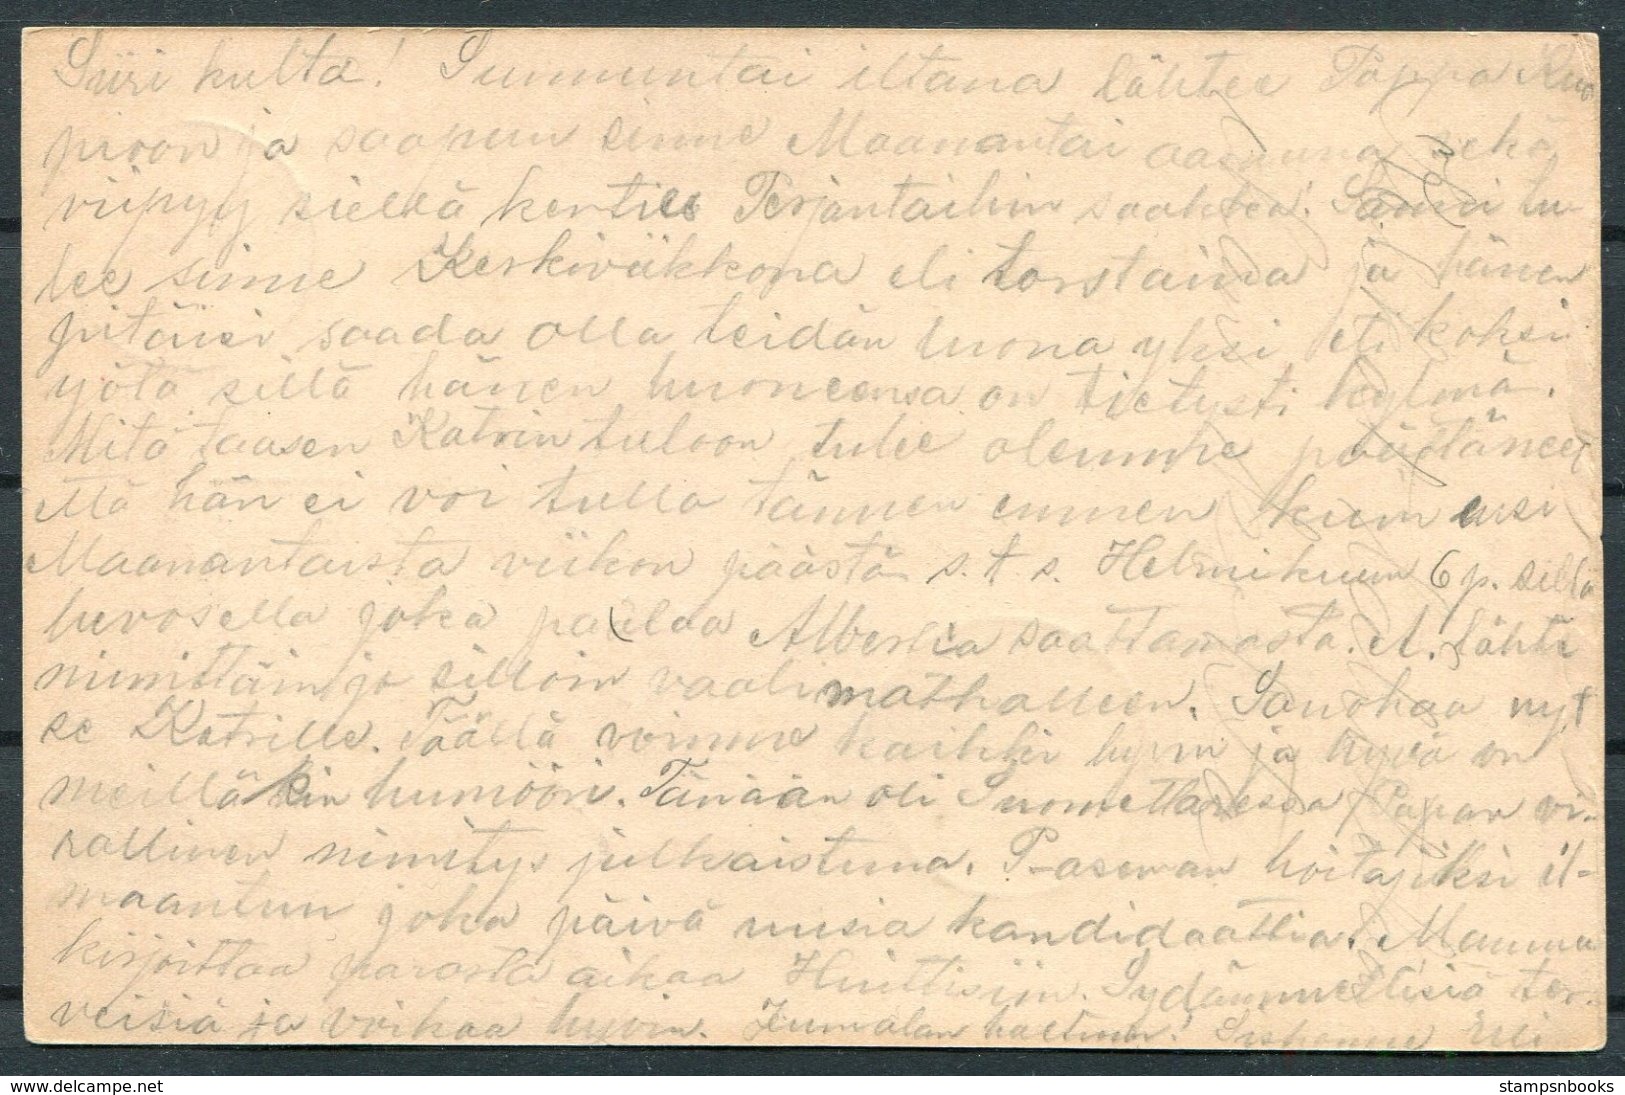 Siiri kulta! Sunnuntai iltana lähtee Pappa Kuo
pioon ja saapuu sinne Maanantai aamuna sekä
viipyy siellä kenties Perjantaihin saakka. Sanni tu-
lee sinne Keskiviikkona eli torstaina ja hänen
pitäisi saada olla teidän luona yksi eli kaksi
yötä sillä hänen huoneensa on tietysti kylmä.
Mitä taasen Katrin tuloon tulee olemme päättäneet
että hän ei voi tulla tännen ennen kuin ensi
Maanantaista viikon päästä s.t.s. Helmikuun 6 p. sillä
hevosella joka palaa Albertia saattamasta. A. lähte
nimittäin jo silloin vaali matkalleen. Sanohaa nyt
se Katrille. Täällä voimme kaikki hyvin ja hyvä on
meilläkin humööri. Tänään oli Suomettaressa Papan vi-
rallinen nimitys julkaistuna. P-aseman hoitajiksi il-
maantuu joka päivä uusia kandidaattia. Mamma
kirjoittaa parasta aikaa Huittisiin. Sydämmellisiä ter-
veisiä ja voikaa hyvin. Jumalan haltuun! Siskonne